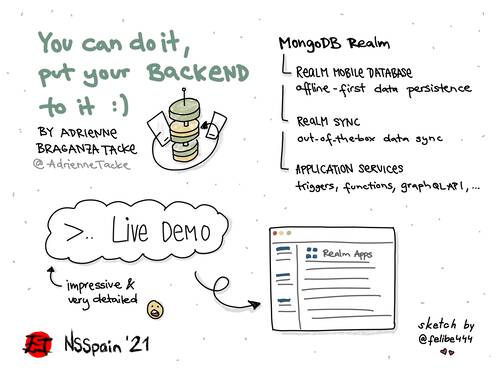 You can do it,
put your BACKEND
to it :)
BY ADRIENNE
BRAGANZA TACKE
@AdrienneTacke
MongoDB Realm
REALM MOBILE DATABASE
offline-first data persistence
REALM SYNC
out-of-the-box data sync
APPLICATION SERVICES
triggers, functions, graphQL API, ...
>.. LIVE DEMO
impressive &
very detailed
Realm Apps
NSSpain '21
sketch by
@felibe444